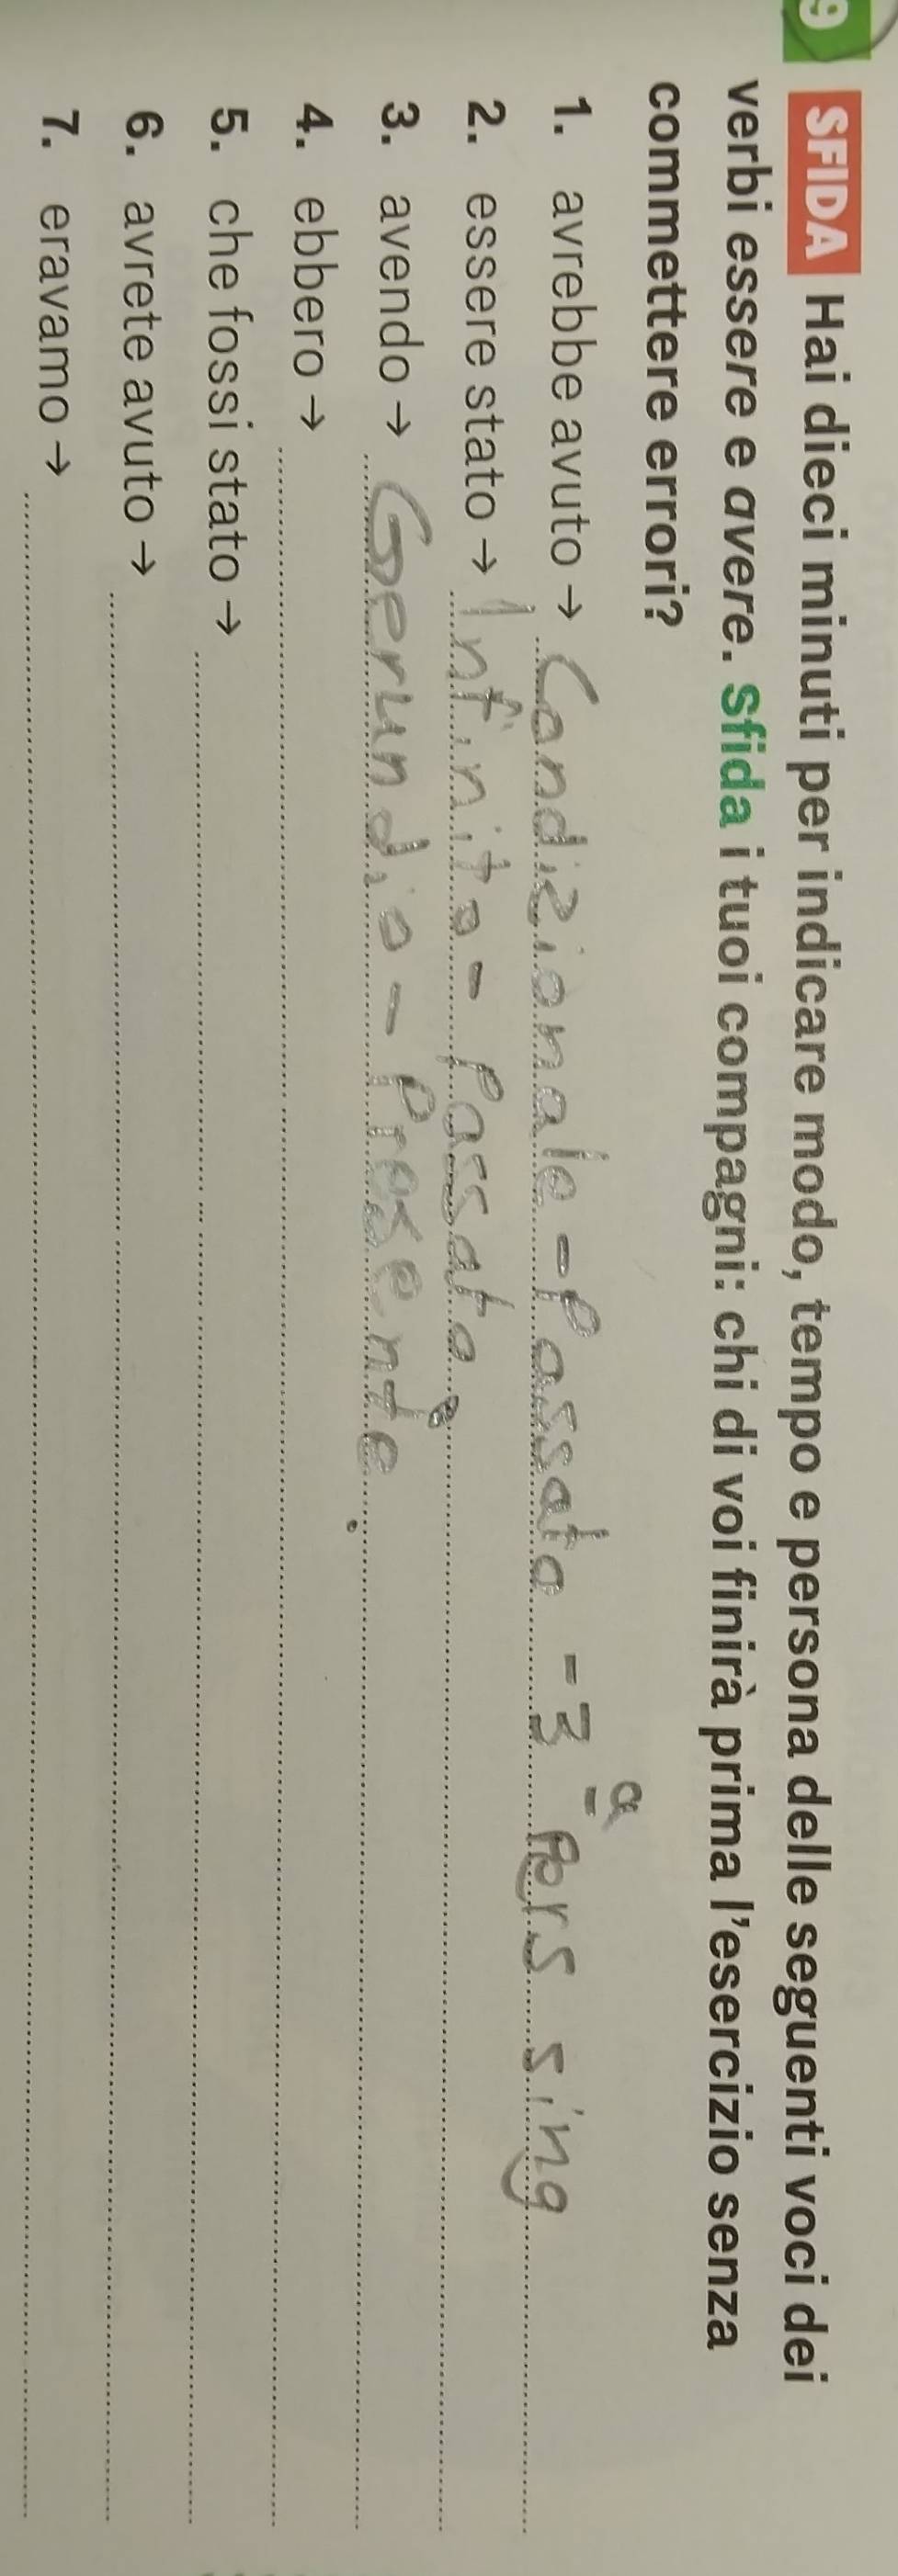 9 SFIDA Hai dieci minuti per indicare modo, tempo e persona delle seguenti voci dei
verbi essere e avere. Sfida i tuoi compagni: chi di voi finirà prima l'esercizio senza
commettere errori?
1. avrebbe avuto → Condizionale - Passato - 3ª Pers sing
2. essere stato → Infinito - Passato.
3. avendo → Gerundio - Presente.
4. ebbero →
5. che fossi stato →
6. avrete avuto →
7. eravamo →